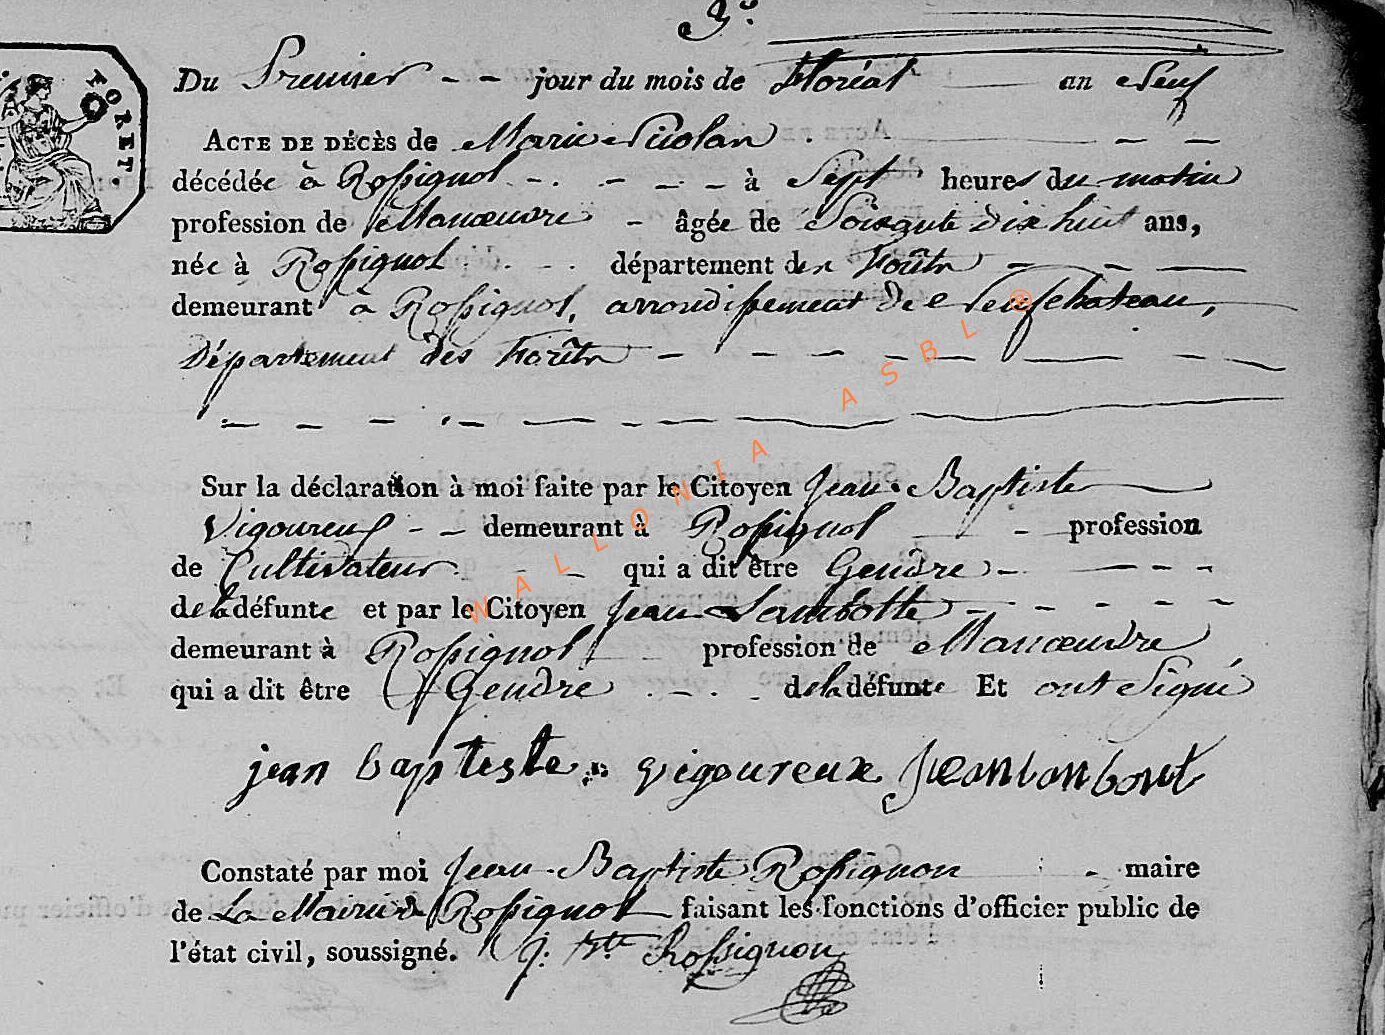 3.e
FORET.
Du Premier -- jour du mois de Floréal an Neuf
ACTE DE DÉCÈS de Marie Nicolan
décédée à Rossignol à Sept heures du matin
profession de Manœuvre - âgée de Soixante dix huit ans,
née à Rossignol département des Forêts
demeurant à Rossignol, arrondissement de Neufchateau,
Département des Forêts
Sur la déclaration à moi faite par le Citoyen Jean-Baptiste
Vigoureux -- demeurant à Rossignol - profession
de Cultivateur qui a dit être Gendre
de la défunte et par le Citoyen Jean Lambotte
demeurant à Rossignol profession de Manœuvre
qui a dit être Gendre de la défunte Et ont Signé
jean baptiste vigoureux Jean lanbout
Constaté par moi Jean-Baptiste Rossignon maire
de La Mairie de Rossignol faisant les fonctions d'officier public de
l'état civil, soussigné. J. Bte Rossignon
WALLONIA ASBL ®